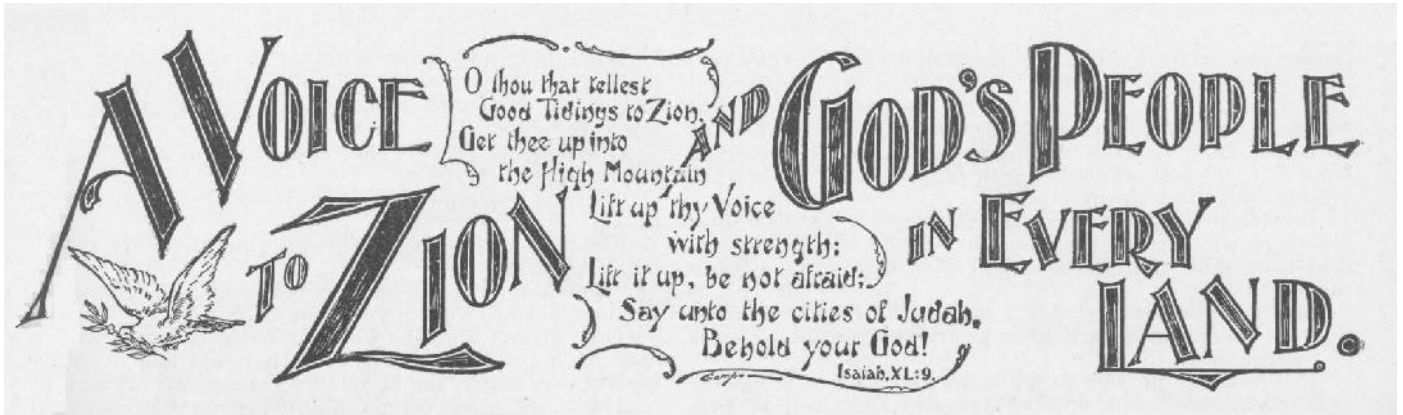 A VOICE
TO ZION
O thou that tellest
Good Tidings to Zion,
Get thee up into
the High Mountain
Lift up thy Voice
with strength;
Lift it up, be not afraid;
Say unto the cities of Judah,
Behold your God!
Isaiah, XL:9.
AND GOD'S PEOPLE
IN EVERY
LAND.